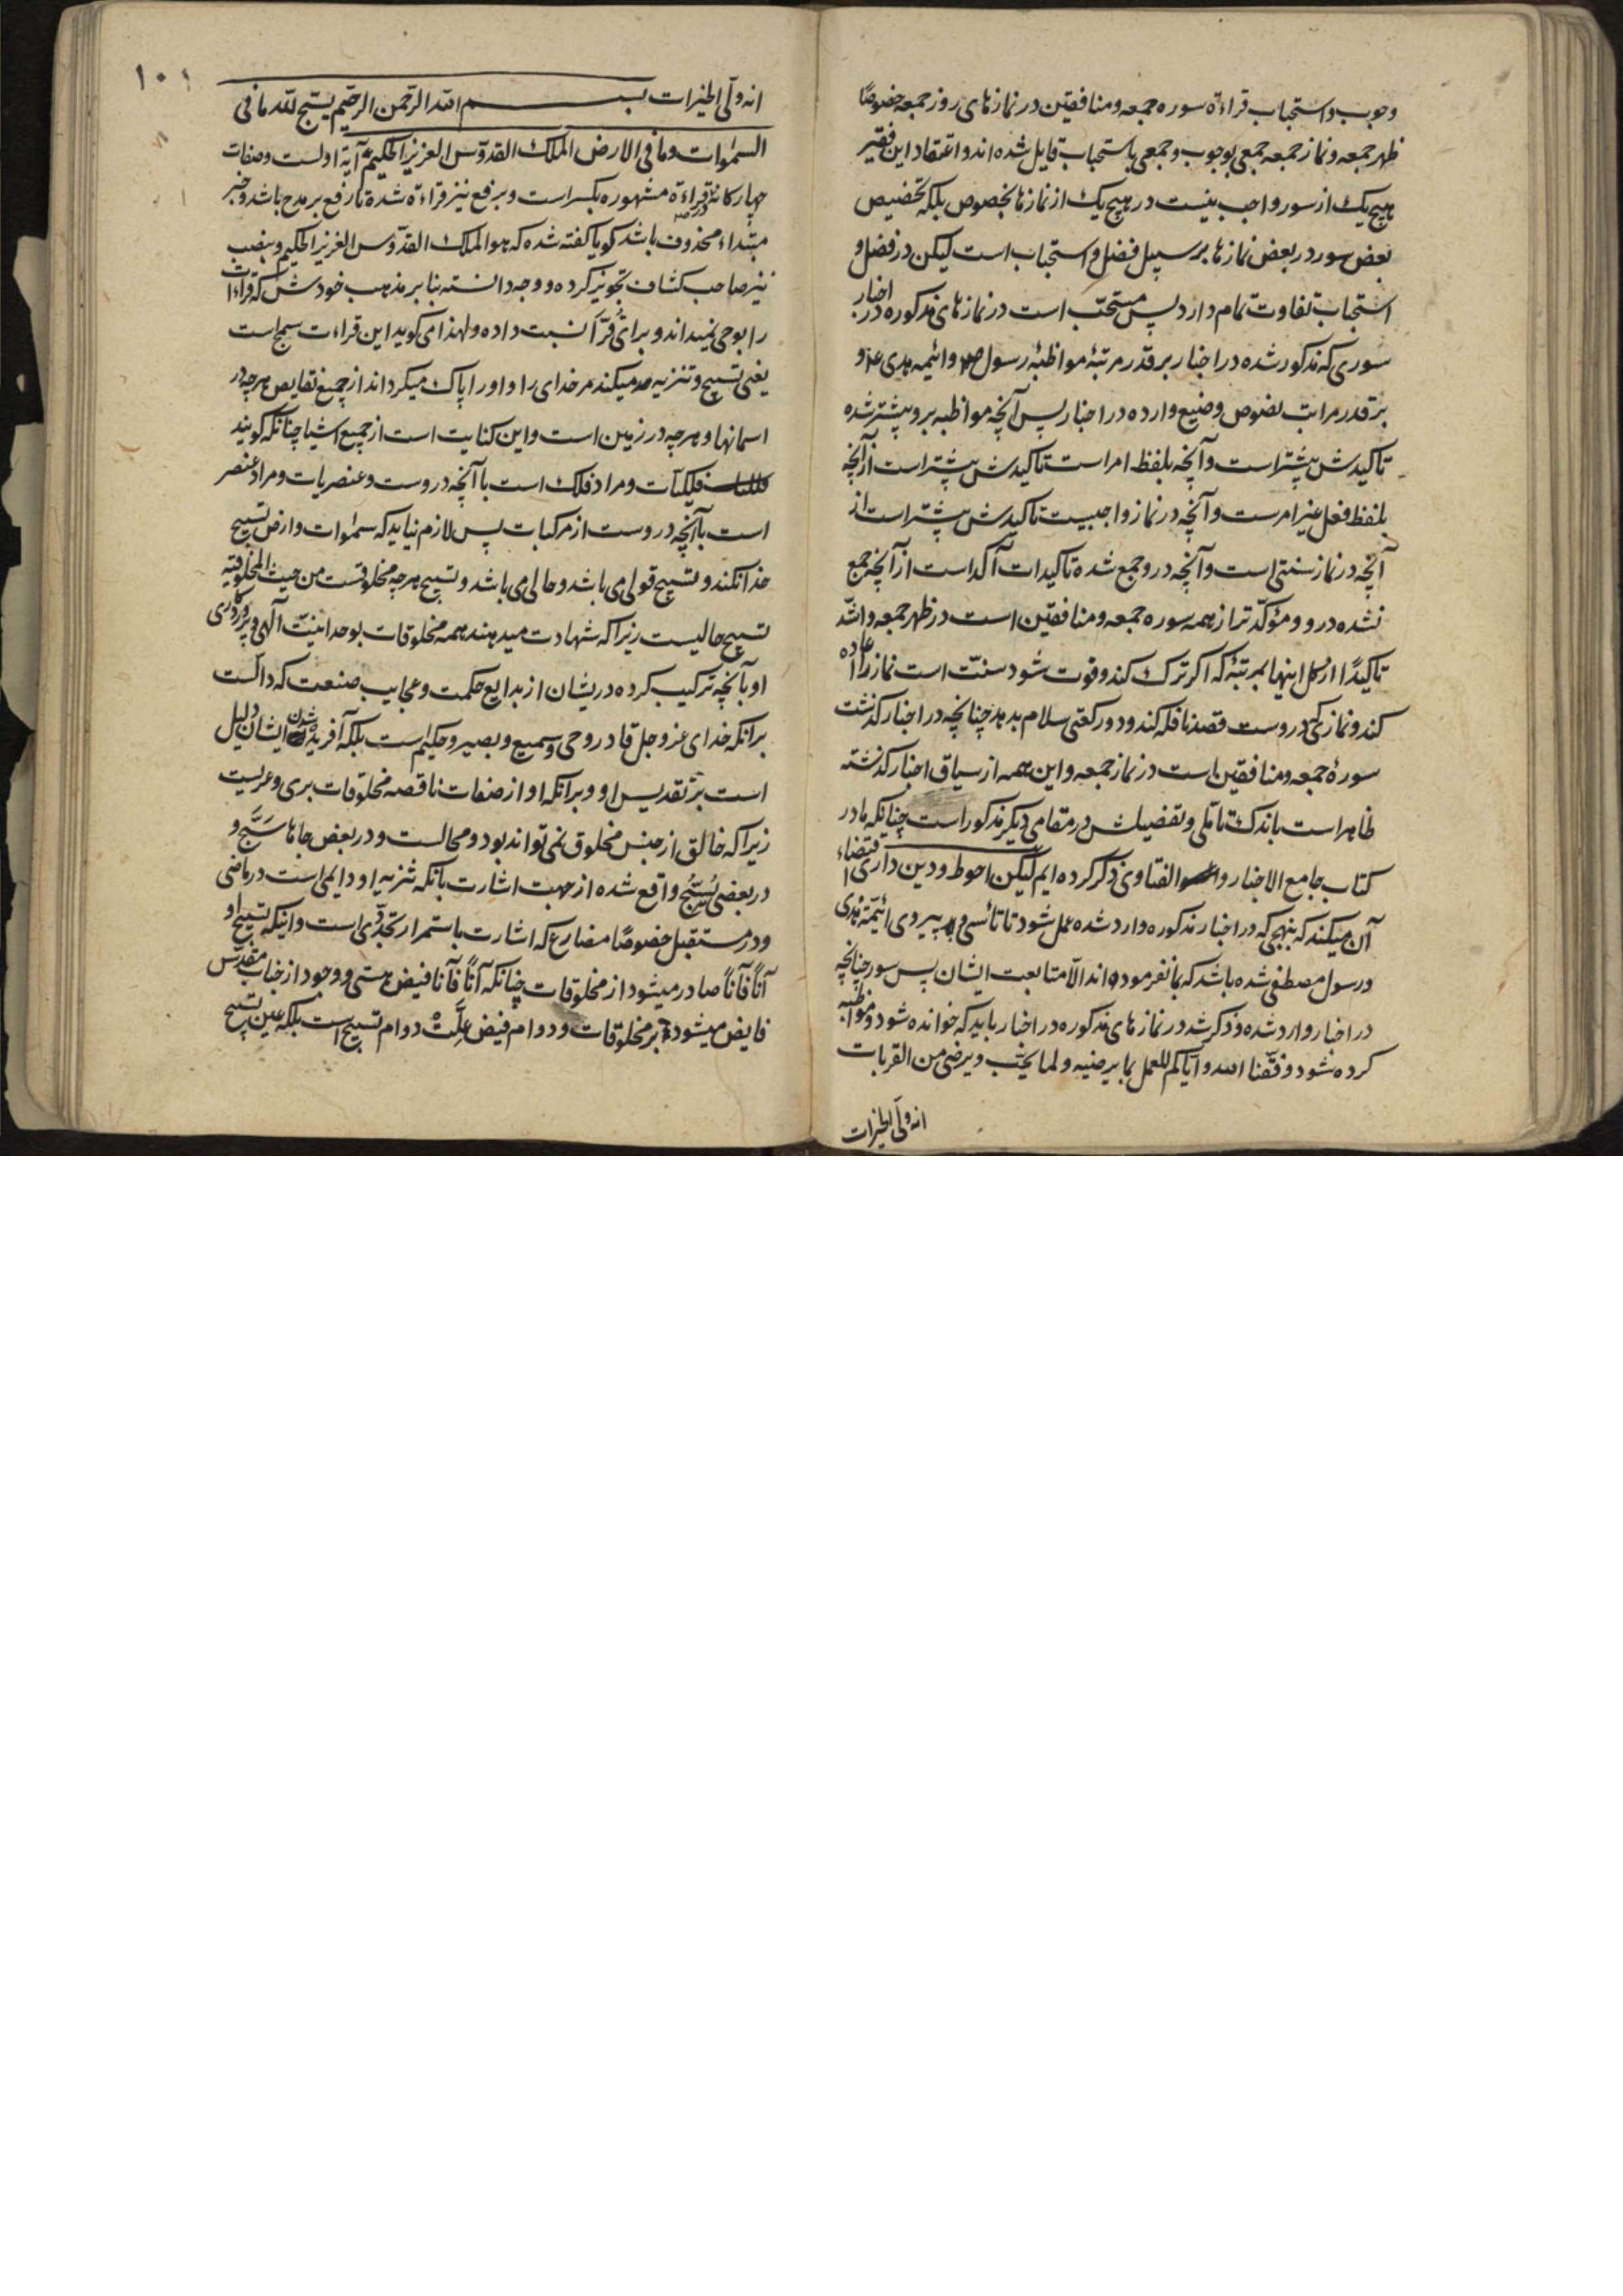 وجوب و استحباب قراءة سوره جمعه و منافقین در نمازهای روز جمعه خصوصًا
ظهر جمعه و نماز جمعه جمعی بوجوب و جمعی باستحباب قایل شده اند و اعتقاد این فقیر
هیچ یک از سور واجب نیست در هیچ یک از نمازها بخصوص بلکه تخصیص
بعض سور در بعض نمازها بر سبیل فضل و استحباب است لیکن در فضل و
استحباب تفاوت تمام دارد پس مستحبّ است در نمازهای مذکوره در اخبار
سوری که مذکور شده در اخبار بر قدر مرتبهٔ مواظبهٔ رسول ص و ائیمه هدی ع و
بر قدر مراتب نصوص وضیع وارده در اخبار پس آنچه مواظبه برو بیشتر شده
تاکیدش بیشتر است و آنچه بلفظ امر است تاکیدش بیشتر است از آنچه
بلفظ فعل غیر امرست و آنچه در نماز واجبیست تاکیدش بیشتر است از
آنچه در نماز سنتی است و آنچه در و جمع شده تاکیدات آکد است از آنچه جمع
نشده درو و مؤکّد تر از همه سوره جمعه و منافقین است در ظهر جمعه و اشّد
تاکیدًا از کل اینها بمرتبهٔ که اکر ترک کند و فوت شود سنّت است نماز را اعاده
کند و نماز کی دروست قصد نافله کند و دو رکعتی سلام بدهد چنانچه در اخبار کذشت
سورهٔ جمعه و منافقین است در نماز جمعه و این همه از سیاق اخبار کذشته
ظاهر است باندک تاملی و تفضیلش در مقامی دیکر مذکور است چنانکه ما در
کتاب جامع الاخبار و الفتاوی ذکر کرده ایم لیکن احوط و دین داری اقتضاء
آن میکند که بنهجی که در اخبار مذکوره وارد شده عمل شود تا تأسی و پیروی ائیمّهٔ هدی
و رسول مصطفی شده باشد که بما نفرموده اند الّا متابعت ایشان پس سور چنانچه
در اخبار وارد شده و ذکر شد در نمازهای مذکوره در اخبار باید که خوانده شود و مواظبه
کرده شود وفّقنا الله و ایّاکم للعمل بما یرضیه و لما یحبّ و یرضی من القربات
انه ولی الخیرات
۱۰۱
انه ولی الخیرات بسم الله الرّحمن الرحیم یسبّح للّه ما فی
السموات و ما فی الارض الملک القدوّس العزیز الحکیم آیة اولست و صفات
چهارکانه در قراءة مشهوره بکسر است و برفع نیز قراءة شده تا رفع بر مدح باشد و خبر
مبتداء محذوف باشد کویا کفته شده که هو الملک القدّوس العزیز الحکیم و بنصب
نیز صاحب کشاف تجویز کرده و وجه دانسته بنا بر مذهب خودش که قراءات
را بوحی نمیداند و برای قرّآ نسبت داده و لهذا می کوید این قراءت سمج است
یعنی تسبیح و تنزیه میکند مر خدای را و او را پاک میکرداند از جمیع نقایص هر چه در
اسمانها و هر چه در زمین است و این کنایت است از جمیع اشیا چنانکه کویند
فلکیّات و مراد فلک است با آنچه دروست و عنصریات و مراد عنصر
است با آنچه دروست از مرکبات پس لازم نیاید که سموات و ارض تسبیح
خدا نکنند و تسبیح قولی می باشد و حالی می باشد و تسبیح هر چه مخلوقست من حیث المخلوقیّة
تسبیح حالیست زیرا که شهادت میدهند همه مخلوقات بوحدانیّت آلهی و پروردکاری
او بآنچه ترکیب کرده در یشان از بدایع حکمت و عجایب صنعت که دالست
برانکه خدای عز و جل قادر و حی و سمیع و بصیر و حکیم است بلکه آفریده شدن ایشان دلیل
است بر تقدیس او و برانکه او از صفات ناقصه مخلوقات بری و عریست
زیرا که خالق از جنس مخلوق نمی تواند بود و محالست و در بعض جاها سَبَّح و
در بعضی یُسَبّحِ واقع شده از جهت اشارت بانکه تنزیه او دایمی است در ماضی
و در مستقبل خصوصًا مضارع که اشارت باستمرار تجدّدی است و اینکه تسبیح او
آنًا فآنًا صادر میشود از مخلوقات چنانکه آنًا فآنًا فیض هستی و وجود از جناب مقدّس
فایض میشود بر مخلوقات و دوام فیض علّت دوام تسبیح است بلکه عین تسبیح